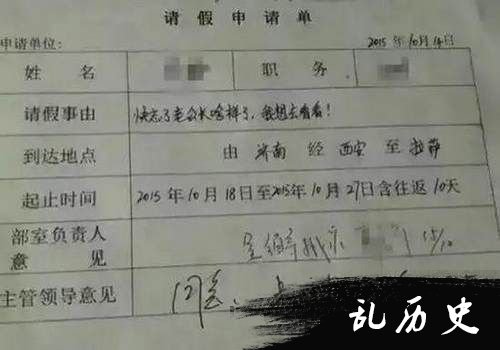 请假申请单
申请单位: 2015年10月14日
姓名 职务
请假事由 快忘了老公长啥样了，我想去看看！
到达地点 由济南经西安至拉萨
起止时间 2015年10月18日至2015年10月27日含往返10天
部室负责人
意见 15/10
主管领导意见 同意
乱历史